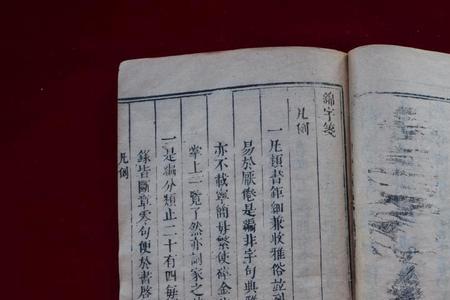 錦字箋
凡例
一凡類書鉅細兼收雅俗並列
易於厭倦是編非字句典
亦不載寧簡毋繁使碎金
掌上一覽了然亦詞家之
一是編分類止二十有四每
錄皆斷章零句便於書啓
凡例